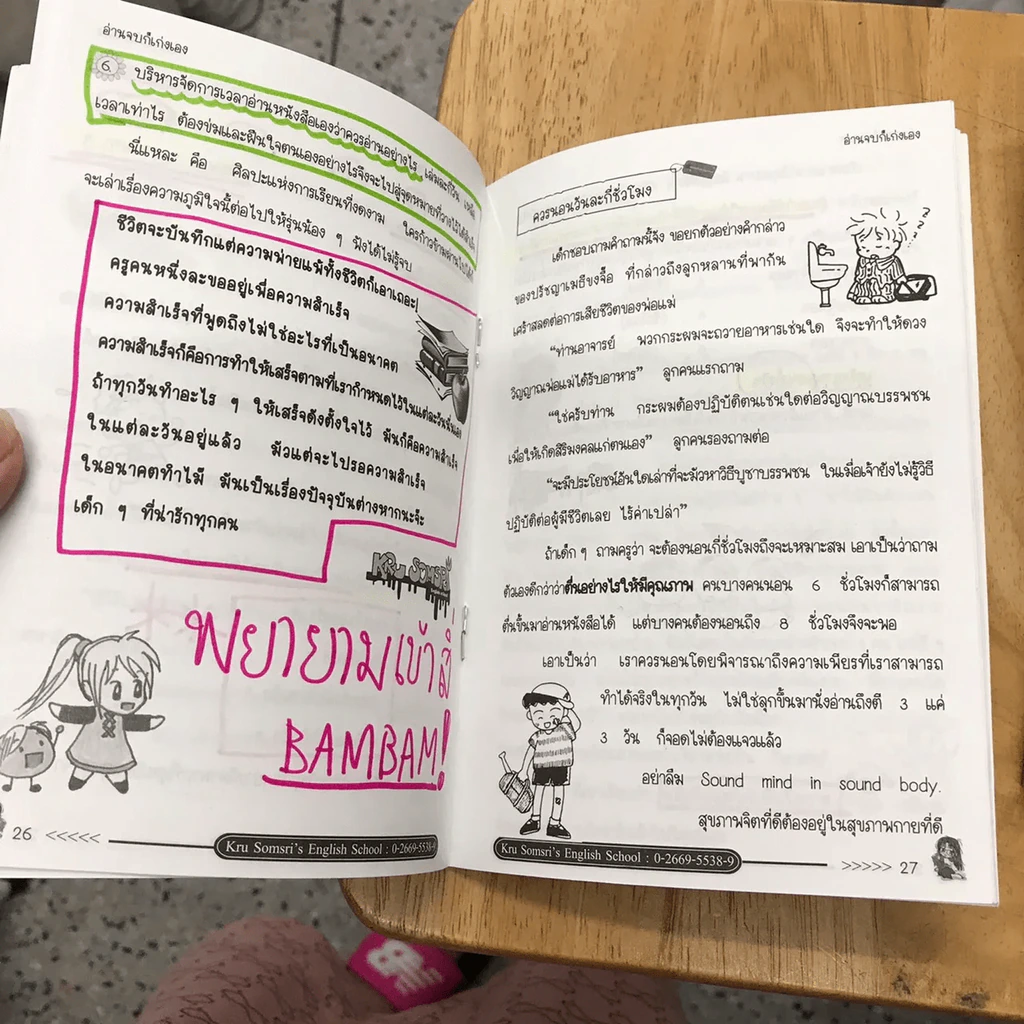 อ่านจบก็เก่งเอง
6. บริหารจัดการเวลาอ่านหนังสือเองว่าควรอ่านอย่างไร เล่มละกี่วัน
เวลาเท่าไร ต้องข่มและฝืนใจตนเองอย่างไรจึงจะไปสู่จุดหมายที่วางไว้ได้สำเร็จ
นี่แหละ คือ ศิลปะแห่งการเรียนที่งดงาม ใครก้าวข้ามผ่านไปได้ก็
จะเล่าเรื่องความภูมิใจนี้ต่อไปให้รุ่นน้อง ๆ ฟังได้ไม่รู้จบ
ชีวิตจะบันทึกแต่ความพ่ายแพ้ทั้งชีวิตก็เอาเถอะ
ครูคนหนึ่งละขออยู่เพื่อความสำเร็จ
ความสำเร็จที่พูดถึงไม่ใช่อะไรที่เป็นอนาคต
ความสำเร็จก็คือการทำให้เสร็จตามที่เรากำหนดไว้ในแต่ละวันนั่นเอง
ถ้าทุกวันทำอะไร ๆ ให้เสร็จดังตั้งใจไว้ มันก็คือความสำเร็จ
ในแต่ละวันอยู่แล้ว มัวแต่จะไปรอความสำเร็จ
ในอนาคตทำไม มันเป็นเรื่องปัจจุบันต่างหากนะจ๊ะ
เด็ก ๆ ที่น่ารักทุกคน
KRU SOMSRI
พยายามเข้าสิ่
BAMBAM!
26 <<<<<
Kru Somsri's English School : 0-2669-5538-9
อ่านจบก็เก่งเอง
ควรนอนวันละกี่ชั่วโมง
เด็กชอบถามคำถามนี้จัง ขอยกตัวอย่างคำกล่าว
ของปรัชญาเมธีขงจื๊อ ที่กล่าวถึงลูกหลานที่พากัน
เศร้าสลดต่อการเสียชีวิตของพ่อแม่
"ท่านอาจารย์ พวกกระผมจะถวายอาหารเช่นใด จึงจะทำให้ดวง
วิญญาณพ่อแม่ได้รับอาหาร" ลูกคนแรกถาม
"ใช่ครับท่าน กระผมต้องปฏิบัติตนเช่นใดต่อวิญญาณบรรพชน
เพื่อให้เกิดสิริมงคลแก่ตนเอง" ลูกคนรองถามต่อ
"จะมีประโยชน์อันใดเล่าที่จะมัวหาวิธีบูชาบรรพชน ในเมื่อเจ้ายังไม่รู้วิธี
ปฏิบัติต่อผู้มีชีวิตเลย ไร้ค่าเปล่า"
ถ้าเด็ก ๆ ถามครูว่า จะต้องนอนกี่ชั่วโมงถึงจะเหมาะสม เอาเป็นว่าถาม
ตัวเองดีกว่าว่าตื่นอย่างไรให้มีคุณภาพ คนบางคนนอน 6 ชั่วโมงก็สามารถ
ตื่นขึ้นมาอ่านหนังสือได้ แต่บางคนต้องนอนถึง 8 ชั่วโมงจึงจะพอ
เอาเป็นว่า เราควรนอนโดยพิจารณาถึงความเพียรที่เราสามารถ
ทำได้จริงในทุกวัน ไม่ใช่ลุกขึ้นมานั่งอ่านถึงตี 3 แค่
3 วัน ก็จอดไม่ต้องแจวแล้ว
อย่าลืม Sound mind in sound body.
สุขภาพจิตที่ดีต้องอยู่ในสุขภาพกายที่ดี
Kru Somsri's English School : 0-2669-5538-9
>>>>> 27